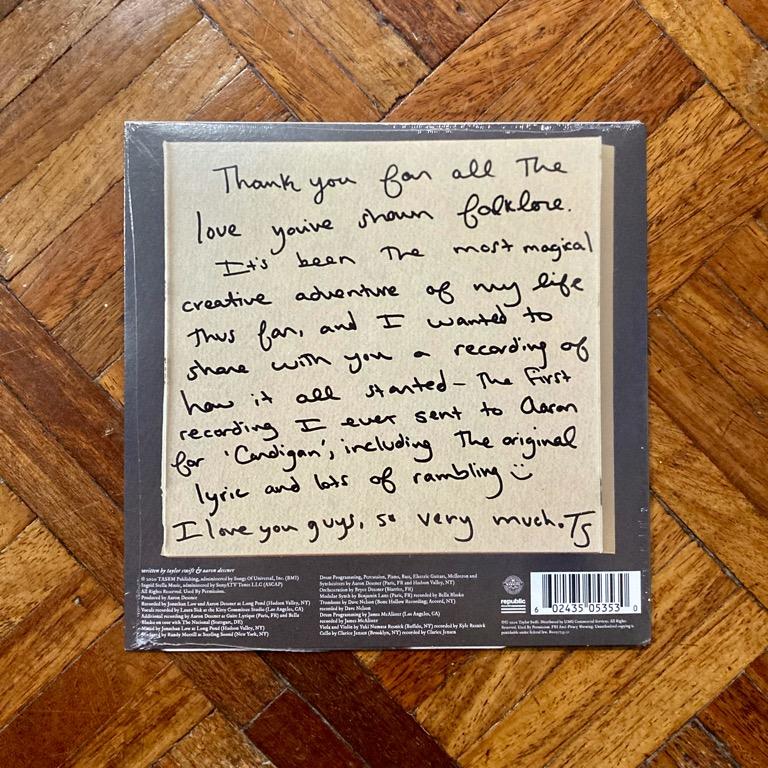 Thank you for all The
love you've shown folklore.
It's been The most magical
creative adventure of my life
thus far, and I wanted to
share with you a recording of
how it all started - The first
recording I ever sent to Aaron
for 'Cardigan', including The original
lyric and lots of rambling :)
I love you guys, so very much. TS
written by taylor swift & aaron dessner
© 2020 TASRM Publishing, administered by Songs Of Universal, Inc. (BMI)
Ingrid Stella Music, administered by Sony/ATV Tunes LLC (ASCAP)
All Rights Reserved. Used By Permission.
Produced by Aaron Dessner
Recorded by Jonathan Low and Aaron Dessner at Long Pond (Hudson Valley, NY)
Vocals recorded by Laura Sisk at the Kitty Committee Studio (Los Angeles, CA)
Additional recording by Aaron Dessner at Gaite Lyrique (Paris, FR) and Bella
Blasko on tour with The National (Stuttgart, DE)
Mixed by Jonathan Low at Long Pond (Hudson Valley, NY)
Mastered by Randy Merrill at Sterling Sound (New York, NY)
Drum Programming, Percussion, Piano, Bass, Electric Guitars, Mellotron and
Synthesizers by Aaron Dessner (Paris, FR and Hudson Valley, NY)
Orchestration by Bryce Dessner (Biarritz, FR)
Modular Synth by Benjamin Lanz (Paris, FR) recorded by Bella Blasko
Trombone by Dave Nelson (Bone Hollow Recording, Accord, NY)
recorded by Dave Nelson
Drum Programming by James McAlister (Los Angeles, CA)
recorded by James McAlister
Viola and Violin by Yuki Numata Resnick (Buffalo, NY) recorded by Kyle Resnick
Cello by Clarice Jensen (Brooklyn, NY) recorded by Clarice Jensen
republic
6 02435 05353 0
℗© 2020 Taylor Swift. Distributed by UMG Commercial Services. All Rights
Reserved. Used By Permission. FBI Anti-Piracy Warning: Unauthorized copying is
punishable under federal law.